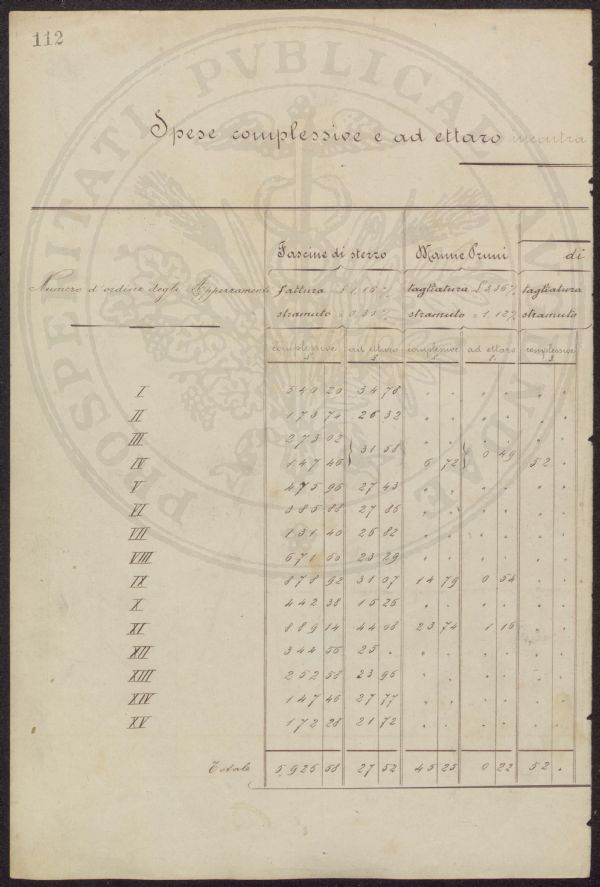 112
PROSPERITATI PVBLICAE AVGENDAE
Spese complessive e ad ettaro incontra
Fascine di sterzo Manne Pruni di
Numero d'ordine degli Appezzamenti fattura tagliatura tagliatura
stramuto stramuto stramuto
complessive ad ettaro complessive ad ettaro complessive
I 549 20 34 78 . . . . . .
II 173 74 26 32 . . . . . .
III 273 02
IV 147 46 } 31 58 6 72 } 0 49 52 .
V 475 96 27 43 . . . . . .
VI 385 88 27 86 . . . . . .
VII 131 40 26 82 . . . . . .
VIII 671 60 23 29 . . . . . .
IX 878 92 31 07 14 79 0 54 . .
X 442 38 15 26 . . . . . .
XI 889 14 44 08 23 74 1 16 . .
XII 344 56 25 . . . . . . .
XIII 252 58 23 96 . . . . . .
XIV 147 46 27 77 . . . . . .
XV 172 28 21 72 . . . . . .
Totale 5925 58 27 52 45 25 0 22 52 .